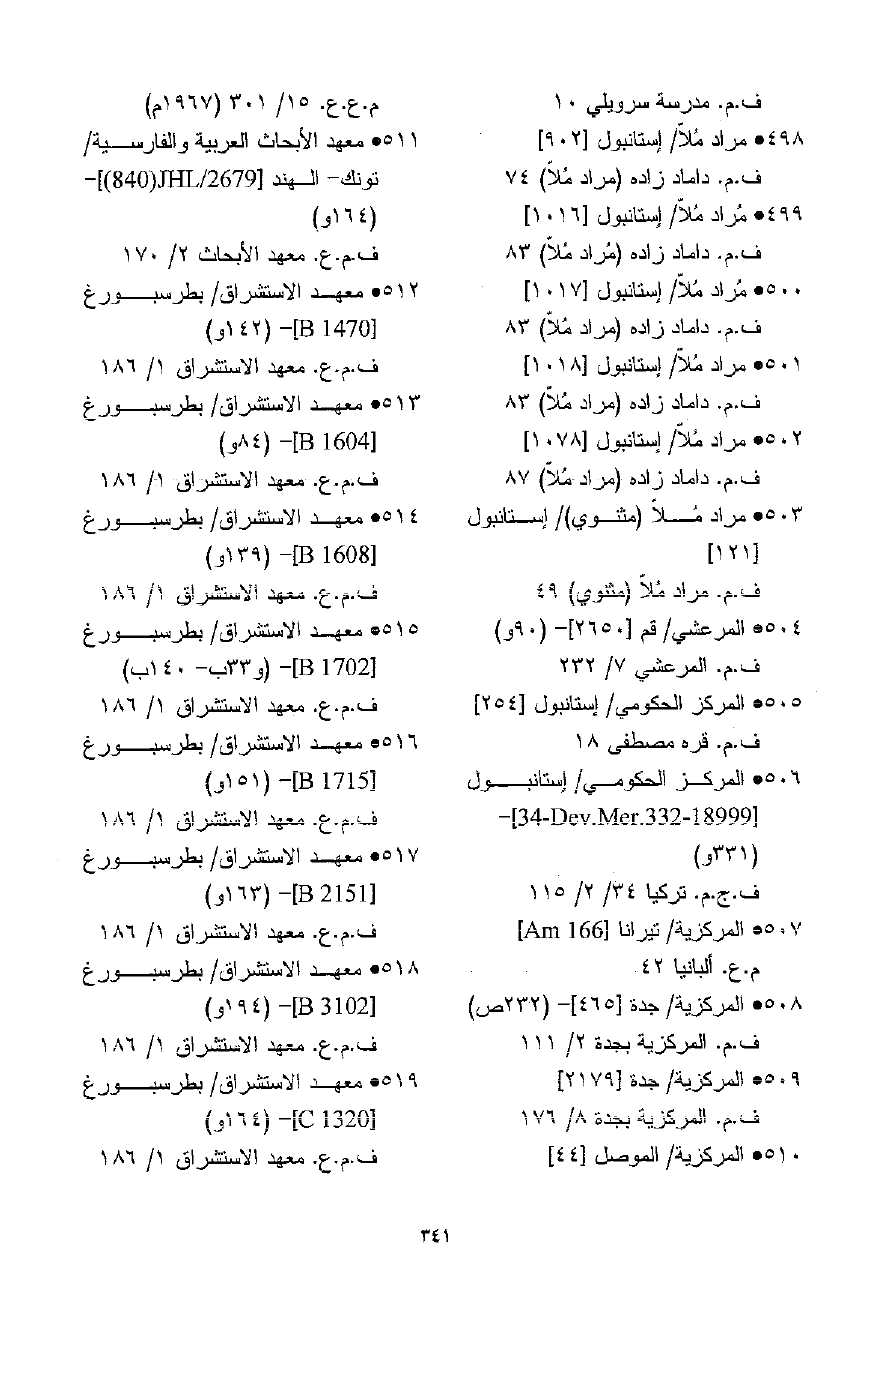 ف.م. مدرسة سرويلي ١٠
٤٩٨• مراد مُلاّ/ إستانبول [٩٠٢]
ف.م. داماد زاده (مراد مُلاّ) ٧٤
٤٩٩• مُراد مُلاّ/ إستانبول [١٠١٦]
ف.م. داماد زاده (مُراد مُلاّ) ٨٣
٥٠٠• مُراد مُلاّ/ إستانبول [١٠١٧]
ف.م. داماد زاده (مراد مُلاّ) ٨٣
٥٠١• مراد مُلاّ/ إستانبول [١٠١٨]
ف.م. داماد زاده (مراد مُلاّ) ٨٣
٥٠٢• مراد مُلاّ/ إستانبول [١٠٧٨]
ف.م. داماد زاده (مراد مُلاّ) ٨٧
٥٠٣• مراد مُـــلاّ (مثنــوي)/ إستــانبول
[١٢١]
ف.م. مراد مُلاّ (مثنوي) ٤٩
٥٠٤• المرعشي/ قم [٢٦٥٠]– (٩٠و)
ف.م. المرعشي ٧/ ٢٣٢
٥٠٥• المركز الحكومي/ إستانبول [٢٥٤]
ف.م. قره مصطفى ١٨
٥٠٦• المركــز الحكومــي/ إستانبـــول
[34-Dev.Mer.332-18999]–
(٣٣١و)
ف.ج.م. تركيا ٣٤/ ٢/ ١١٥
٥٠٧• المركزية/ تيرانا [Am 166]
م.ع. ألبانيا ٤٢
٥٠٨• المركزية/ جدة [٤٦٥]– (٢٣٢ص)
ف.م. المركزية بجدة ٢/ ١١١
٥٠٩• المركزية/ جدة [٢١٧٩]
ف.م. المركزية بجدة ٨/ ١٧٦
٥١٠• المركزية/ الموصل [٤٤]
م.ع.ع. ١٥/ ٣٠١ (١٩٦٧م)
٥١١• معهد الأبحاث العربية والفارســية/
تونك– الــهند [JHL/2679(840)]–
(١٦٤و)
ف.م.ع. معهد الأبحاث ٢/ ١٧٠
٥١٢• معهــد الاستشراق/ بطرسبـــورغ
[B 1470]– (١٤٢و)
ف.م.ع. معهد الاستشراق ١/ ١٨٦
٥١٣• معهــد الاستشراق/ بطرسبـــورغ
[B 1604]– (٨٤و)
ف.م.ع. معهد الاستشراق ١/ ١٨٦
٥١٤• معهــد الاستشراق/ بطرسبـــورغ
[B 1608]– (١٣٩و)
ف.م.ع. معهد الاستشراق ١/ ١٨٦
٥١٥• معهــد الاستشراق/ بطرسبـــورغ
[B 1702]– (و٣٣ب– ١٤٠ب)
ف.م.ع. معهد الاستشراق ١/ ١٨٦
٥١٦• معهــد الاستشراق/ بطرسبـــورغ
[B 1715]– (١٥١و)
ف.م.ع. معهد الاستشراق ١/ ١٨٦
٥١٧• معهــد الاستشراق/ بطرسبـــورغ
[B 2151]– (١٦٣و)
ف.م.ع. معهد الاستشراق ١/ ١٨٦
٥١٨• معهــد الاستشراق/ بطرسبـــورغ
[B 3102]– (١٩٤و)
ف.م.ع. معهد الاستشراق ١/ ١٨٦
٥١٩• معهــد الاستشراق/ بطرسبـــورغ
[C 1320]– (١٦٤و)
ف.م.ع. معهد الاستشراق ١/ ١٨٦
٣٤١